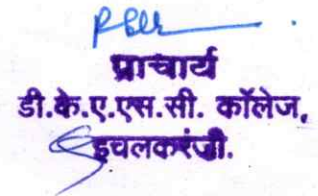 प्राचार्य
डी.के.ए.एस.सी. कॉलेज,
इचलकरंजी.